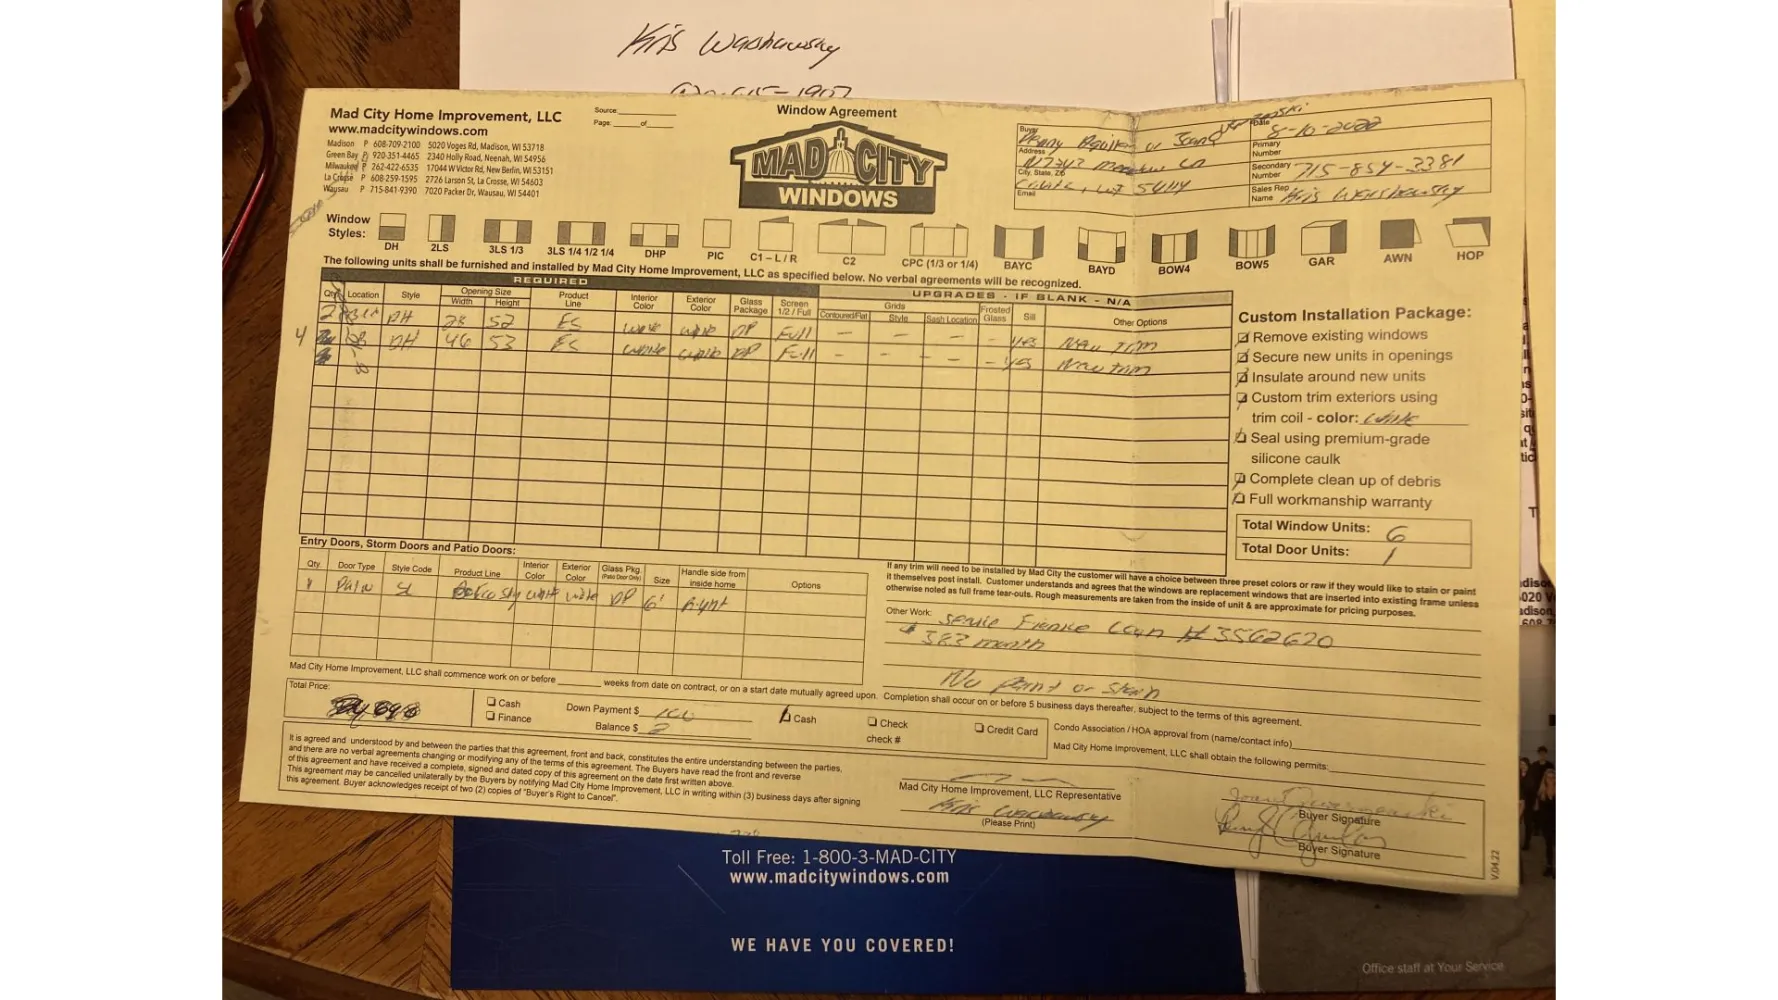 Kris Washawsky
Mad City Home Improvement, LLC
www.madcitywindows.com
Madison P 608-709-2100 5020 Voges Rd, Madison, WI 53718
Green Bay P 920-351-4465 2340 Holly Road, Neenah, WI 54956
Milwaukee P 262-422-6535 17044 W Victor Rd, New Berlin, WI 53151
La Crosse P 608-259-1595 2726 Larson St, La Crosse, WI 54603
Wausau P 715-841-9390 7020 Packer Dr, Wausau, WI 54401
Source:
Page: of
Window Agreement
MAD CITY
WINDOWS
Buyer
Address
City, State, Zip
Email
Date 8-10-2022
Primary Number
Secondary Number 715-854-3381
Sales Rep Name Kris
Window Styles:
DH 2LS 3LS 1/3 3LS 1/4 1/2 1/4 DHP PIC C1 – L / R C2 CPC (1/3 or 1/4) BAYC BAYD BOW4 BOW5 GAR AWN HOP
The following units shall be furnished and installed by Mad City Home Improvement, LLC as specified below. No verbal agreements will be recognized.
REQUIRED
UPGRADES - IF BLANK - N/A
Qty Location Style Opening Size Width Height Product Line Interior Color Exterior Color Glass Package Screen 1/2 / Full Grids Contoured/Flat Style Sash Location Frosted Glass Sill Other Options
2 DH 52 ES white white DP Full – – – – yes New Trim
4 DH 46 53 ES white white DP Full – – – – yes New trim
Custom Installation Package:
Remove existing windows
Secure new units in openings
Insulate around new units
Custom trim exteriors using
trim coil - color: white
Seal using premium-grade
silicone caulk
Complete clean up of debris
Full workmanship warranty
Total Window Units: 6
Total Door Units: 1
Entry Doors, Storm Doors and Patio Doors:
Qty. Door Type Style Code Product Line Interior Color Exterior Color Glass Pkg. (Patio Door Only) Size Handle side from inside home Options
1 white white DP 6' Right
If any trim will need to be installed by Mad City the customer will have a choice between three preset colors or raw if they would like to stain or paint
it themselves post install. Customer understands and agrees that the windows are replacement windows that are inserted into existing frame unless
otherwise noted as full frame tear-outs. Rough measurements are taken from the inside of unit & are approximate for pricing purposes.
Other Work: Loan # 3562620
$ 383 month
No paint or stain
Mad City Home Improvement, LLC shall commence work on or before weeks from date on contract, or on a start date mutually agreed upon. Completion shall occur on or before 5 business days thereafter, subject to the terms of this agreement.
Total Price:
Cash
Finance
Down Payment $ 100
Balance $
Cash
Check
check #
Credit Card
Condo Association / HOA approval from (name/contact info)
Mad City Home Improvement, LLC shall obtain the following permits:
It is agreed and understood by and between the parties that this agreement, front and back, constitutes the entire understanding between the parties,
and there are no verbal agreements changing or modifying any of the terms of this agreement. The Buyers have read the front and reverse
of this agreement and have received a complete, signed and dated copy of this agreement on the date first written above.
This agreement may be cancelled unilaterally by the Buyers by notifying Mad City Home Improvement, LLC in writing within (3) business days after signing
this agreement. Buyer acknowledges receipt of two (2) copies of "Buyer's Right to Cancel".
Mad City Home Improvement, LLC Representative
Kris
(Please Print)
Buyer Signature
Buyer Signature
V.04.22
Toll Free: 1-800-3-MAD-CITY
www.madcitywindows.com
WE HAVE YOU COVERED!
Office staff at Your Service